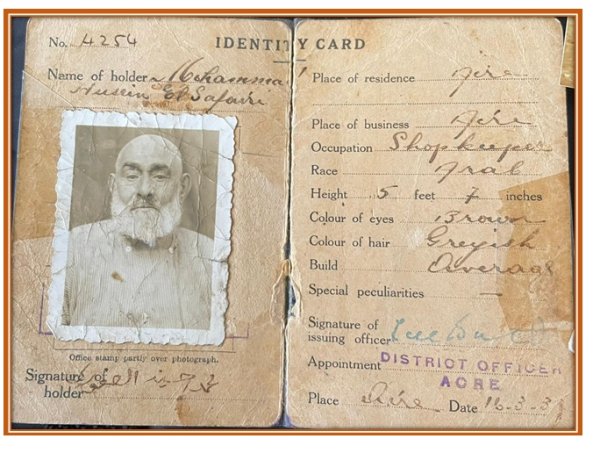 No. 4254
IDENTITY CARD
Name of holder Mohammad
Husein El Safadi
Office stamp partly over photograph.
Signature of
holder
Place of residence Acre
Place of business Acre
Occupation Shopkeeper
Race Arab
Height 5 feet 7 inches
Colour of eyes Brown
Colour of hair Greyish
Build Average
Special peculiarities —
Signature of
issuing officer
Appointment DISTRICT OFFICER
ACRE
Place Acre Date 16-3-3